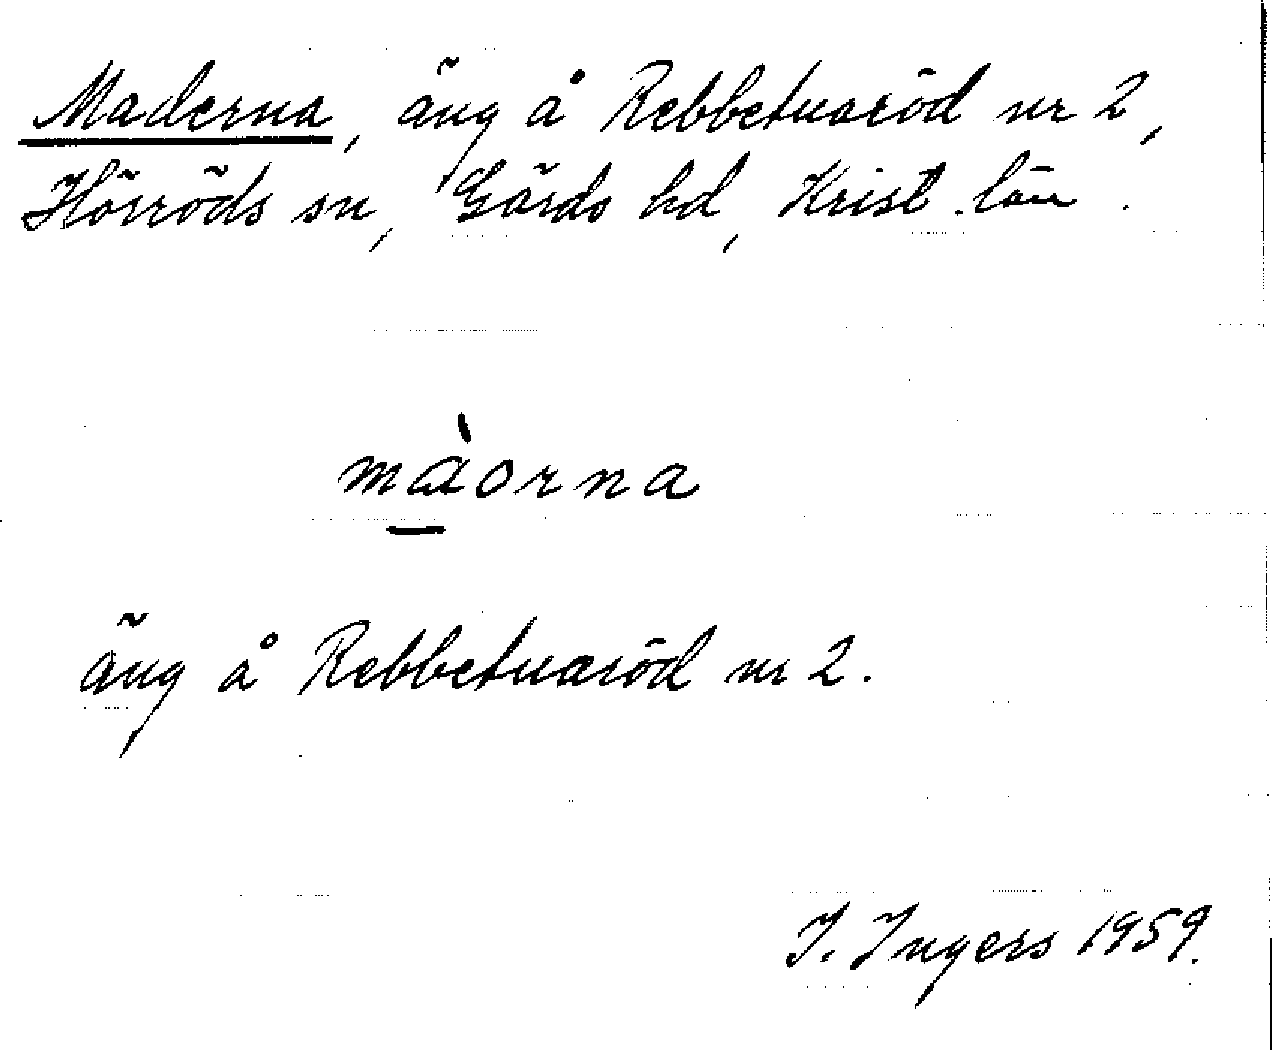 Maderna, äng å Rebbetuaröd nr 2,
Hörröds sn, Gärds hd, Krist. län.
màorna
äng å Rebbetuaröd nr 2.
I. Ingers 1959.